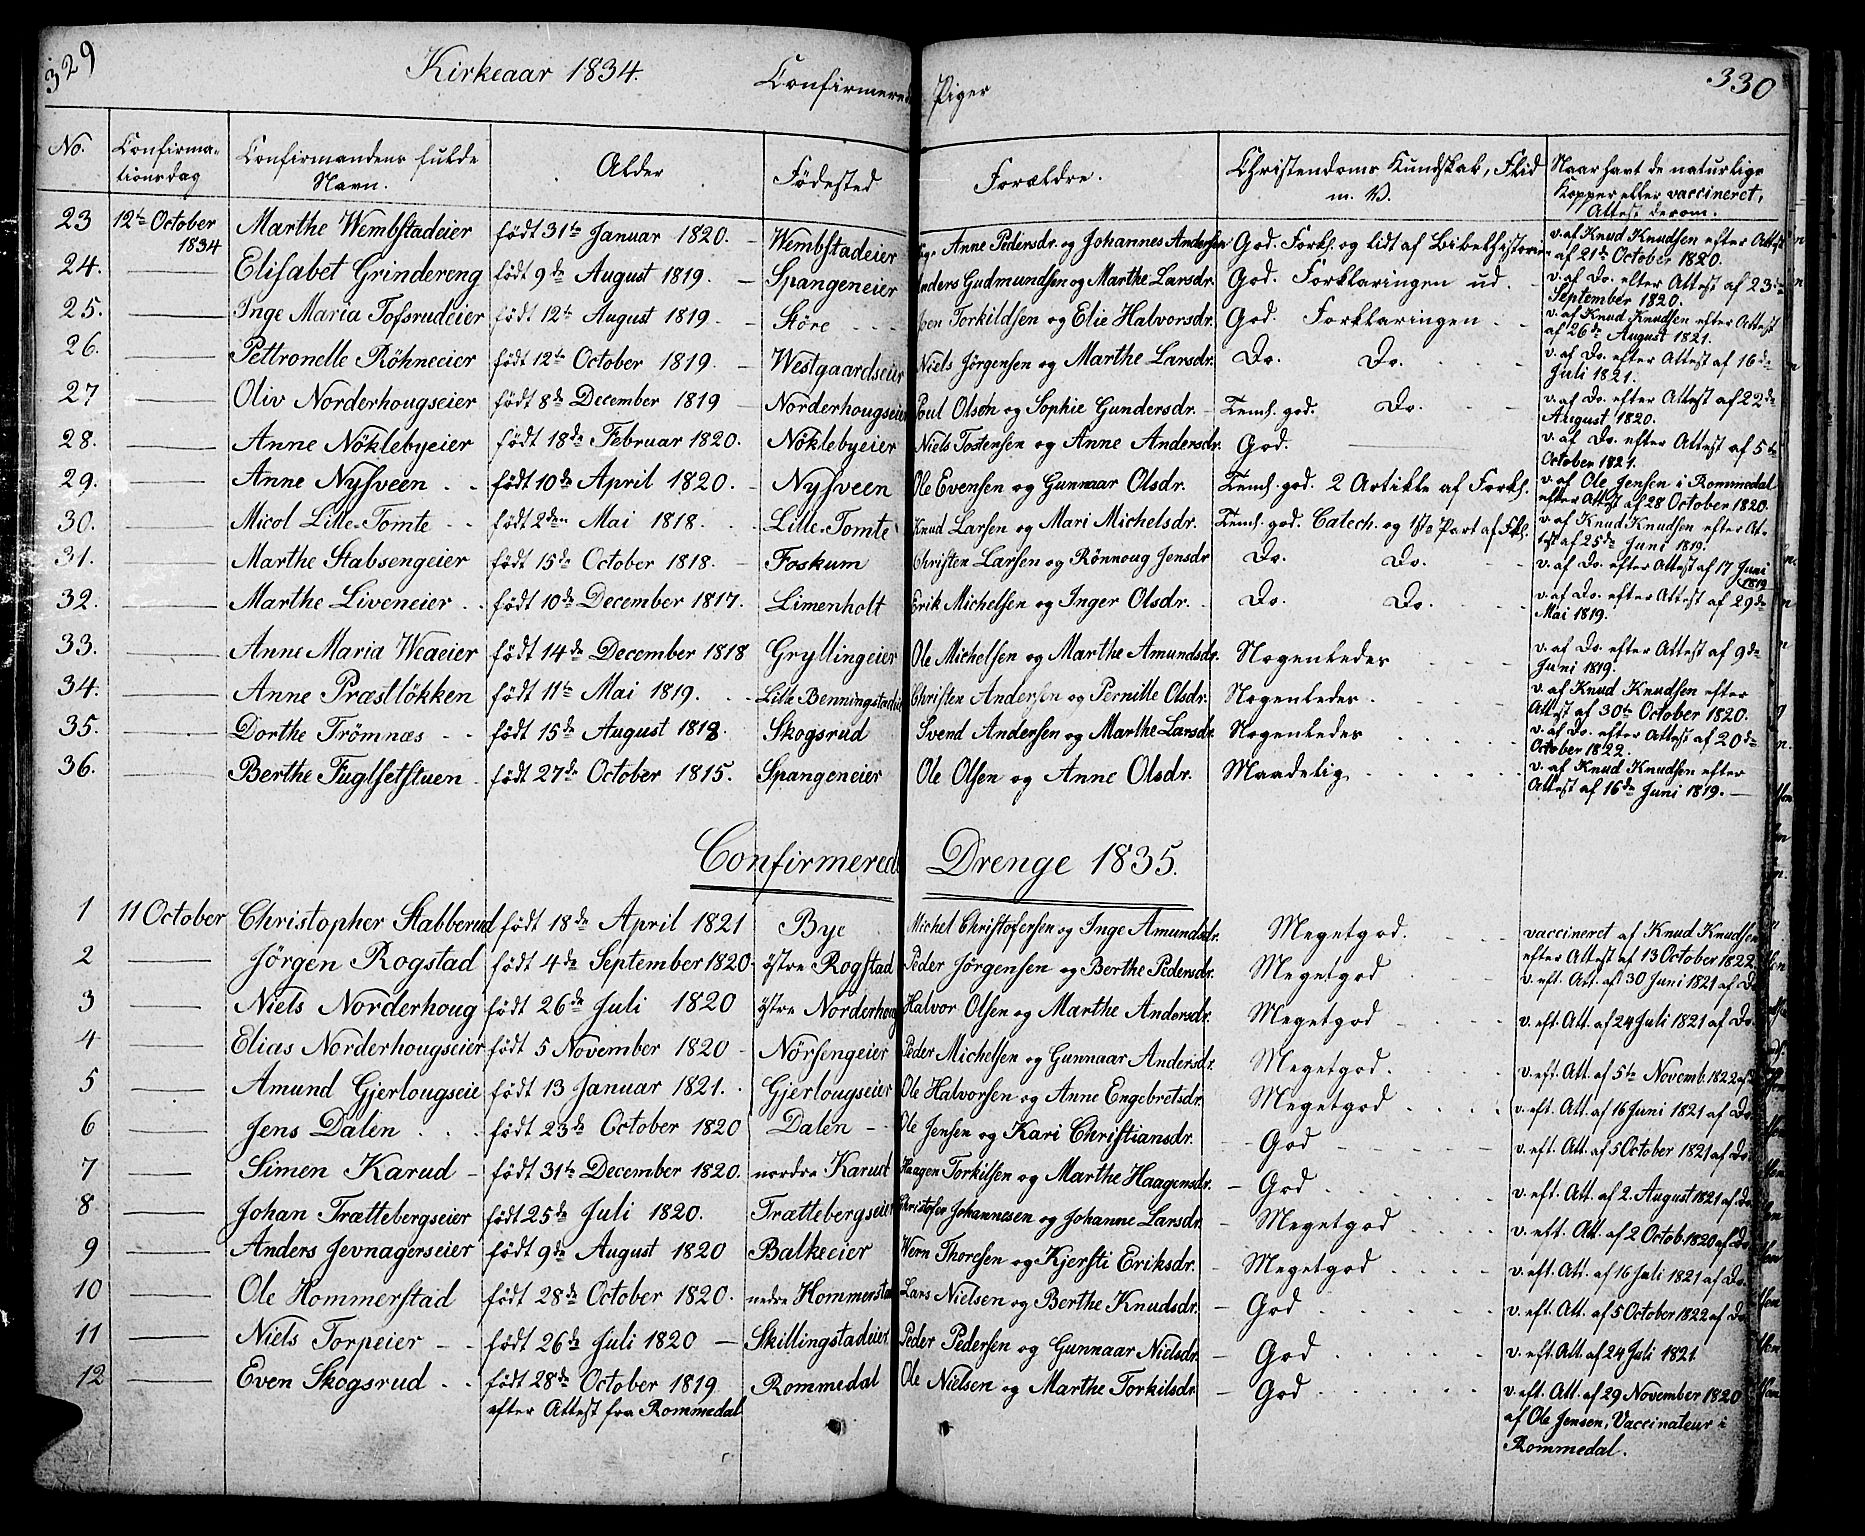 329
Kirkeaar 1834.
Confirmerede Piger
330
No.
Confirma-
tionsdag
Confirmandens fulde
Navn.
Alder
Födested
Forældre.
Christendoms Kundskab, Flid
m. V.
Naar havt de naturlige
Kopper eller vaccineret,
Attest derom.
23 12te October 1834 Marthe Wembstadeier født 31te Januar 1820. Wembstadeier Anne Pedersdr. og Johannes Andersen God. Forkl. og lidt af Bibelhistorien v. af Knud Knudsen efter Attest
af 21de October 1820.
24. Elisabet Grindereng født 9de August 1819. Spangeneier Anders Gudmundsen og Marthe Larsdr. God. Forklaringen ud. v. af Do. efter Attest af 23de
September 1820.
25. Inge Maria Tofsrudeier født 12te August 1819 Störe Torkildsen og Elie Halvorsdr. God. Forklaringen v. af Knud Knudsen efter Attest
af 26de August 1821.
26. Pettronelle Röhneeier født 12te October 1819. Westgaardseier Niels Jörgensen og Marthe Larsdr. Do. Do. v. af Do. efter Attest af 16de
Juli 1821.
27 Oliv Norderhougseier født 8de December 1819 Norderhougseier Poul Olsen og Sophie Gundersdr. Teml. god. Do. v. af Do. efter Attest af 22de
August 1820.
28. Anne Nöklebyeier født 18de Februar 1820. Nöklebyeier Niels Tostensen og Anne Andersdr. God. v. af Do. efter Attest af 5te
October 1821.
29. Anne Nysveen født 10de April 1820. Nysveen Ole Evensen og Gunnaar Olsdr. Teml. god. 2 Artikle af Forkl. v. af Ole Jensen i Rommedal
efter Attest af 28 October 1820.
30. Micol Lille-Tomte født 2den Mai 1818. Lille-Tomte Knud Larsen og Mari Michelsdr. Teml. god. Catech. og 1ste Part af Fkl. v. af Knud Knudsen efter At-
test af 25de Juni 1819.
31. Marthe Stabsengeier født 15de October 1818. Foskum Christen Larsen og Rönnoug Jensdr Do. Do. v. af Do. efter Attest af 17 Juni
1819
32. Marthe Liveneier født 10de December 1817. Limenholt Erik Michelsen og Inger Olsdr. Do. Do. v. af Do. efter Attest af 29de
Mai 1819.
33. Anne Maria Weaeier født 14de December 1818 Gryllingeier Ole Michelsen og Marthe Amundsdr. Nogenledes v. af Do efter Attest af 9de
Juni 1819.
34. Anne Præstlökken født 11te Mai 1819. Lille Benningstadeie Christen Andersen og Pernille Olsdr. Nogenledes v. af Knud Knudsen efter
Attest af 30te October 1820.
35. Dorthe Trömnæs født 15de August 1818. Skogsrud Svend Andersen og Marthe Larsdr. Nogenledes v. af Do. efter Attest af 20de
October 1822.
36. Berthe Fuglsetstuen født 27de October 1815. Spangeneier Ole Olsen og Anne Olsdr. Maadelig v. af Knud Knudsen efter
Attest af 16de Juni 1819.
Confirmerede Drenge 1835.
1 11 October Christopher Stabberud født 18de April 1821 Bye Michel Christofersen og Inge Amundsdr. Megetgod. vaccineret af Knud Knudsen
efter Attest af 13 October 1822
2 Jörgen Rogstad født 4de September 1820 östre Rogstad Peder Jörgensen og Berthe Pedersdr. Megetgod v. eft. Att. aft 30 Juni 1821 af Do
3 Niels Norderhoug født 26de Juli 1820 östre Norderhoug Halvor Olsen og Marthe Andersdr. Megetgod v. eft. Att. af 24 Juli 1821 af Do.
4 Elias Norderhougseier født 5 November 1820 Nörsengeier Peder Michelsen og Gunnaar Andersdr. Megetgod. v. eft. Att. af 5te Novemb. 1822 af
5 Amund Gjerlougseie født 13 Januar 1821. Gjerlougseier Ole Halvorsen og Anne Engebretsdr. Megetgod v. eft. Att. af 16 Juni 1821 af Do.
6 Jens Dalen født 23de October 1820 Dalen Ole Jensen og Kari Christiansdr. God v. eft. Att. af 5 October 1821 af Do.
7 Simen Karud født 31te December 1820. nordre Karud Haagen Torkilsen og Marthe Haagensdr. God v. eft. Att. af 2. August 1821 af Do
8. Johan Trættebergseier født 25de Juli 1820. Trættebergseier Christofer Johannesen og Johanne Larsdr. Megetgod v. eft. Att. af 2 Octob. 1820 af Do
9 Anders Jevnagerseier født 9de August 1820 Balkeeier Wern Thoresen og Kjersti Eriksdr. Megetgod v. eft. Att. af 16 Juli 1821 af Do.
10 Ole Hommerstad født 28de October 1820. nedre Hommerstad Lars Nielsen og Berthe Knudsdr. God v. eft. Att. af 5 October 1822 af Do
11 Niels Torpeier født 26de Juli 1820 Skillingstadeier Peder Pedersen og Gunnaar Nielsdr. God v. eft. Att. af 24 Juli 1821.
12 Even Skogsrud født 28de October 1819 Rommedal Ole Nielsen og Marthe Torkilsdr God v. eft. Att. af 29 November 1820
efter Attest fra Rommedal
af Ole Jensen, Vaccinateur i
Rommedal.